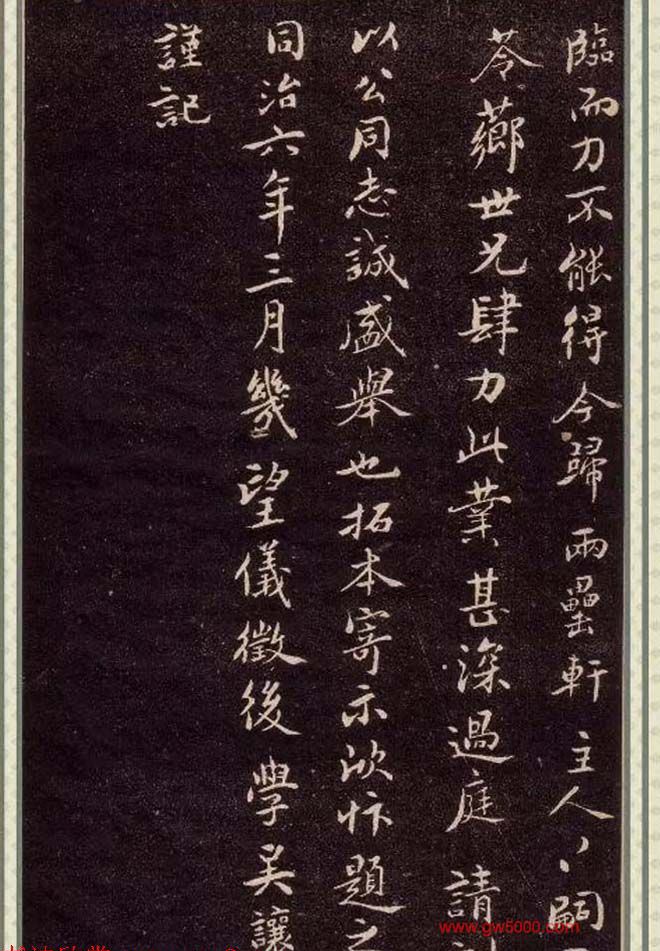 臨而力不能得今歸兩罍軒主人丷嗣
苓薌世兄肆力此業甚深過庭請
以公同志誠盛舉也拓本寄示欣忭題之
同治六年三月幾望儀徵後學吳讓
謹記
www.gw5000.com